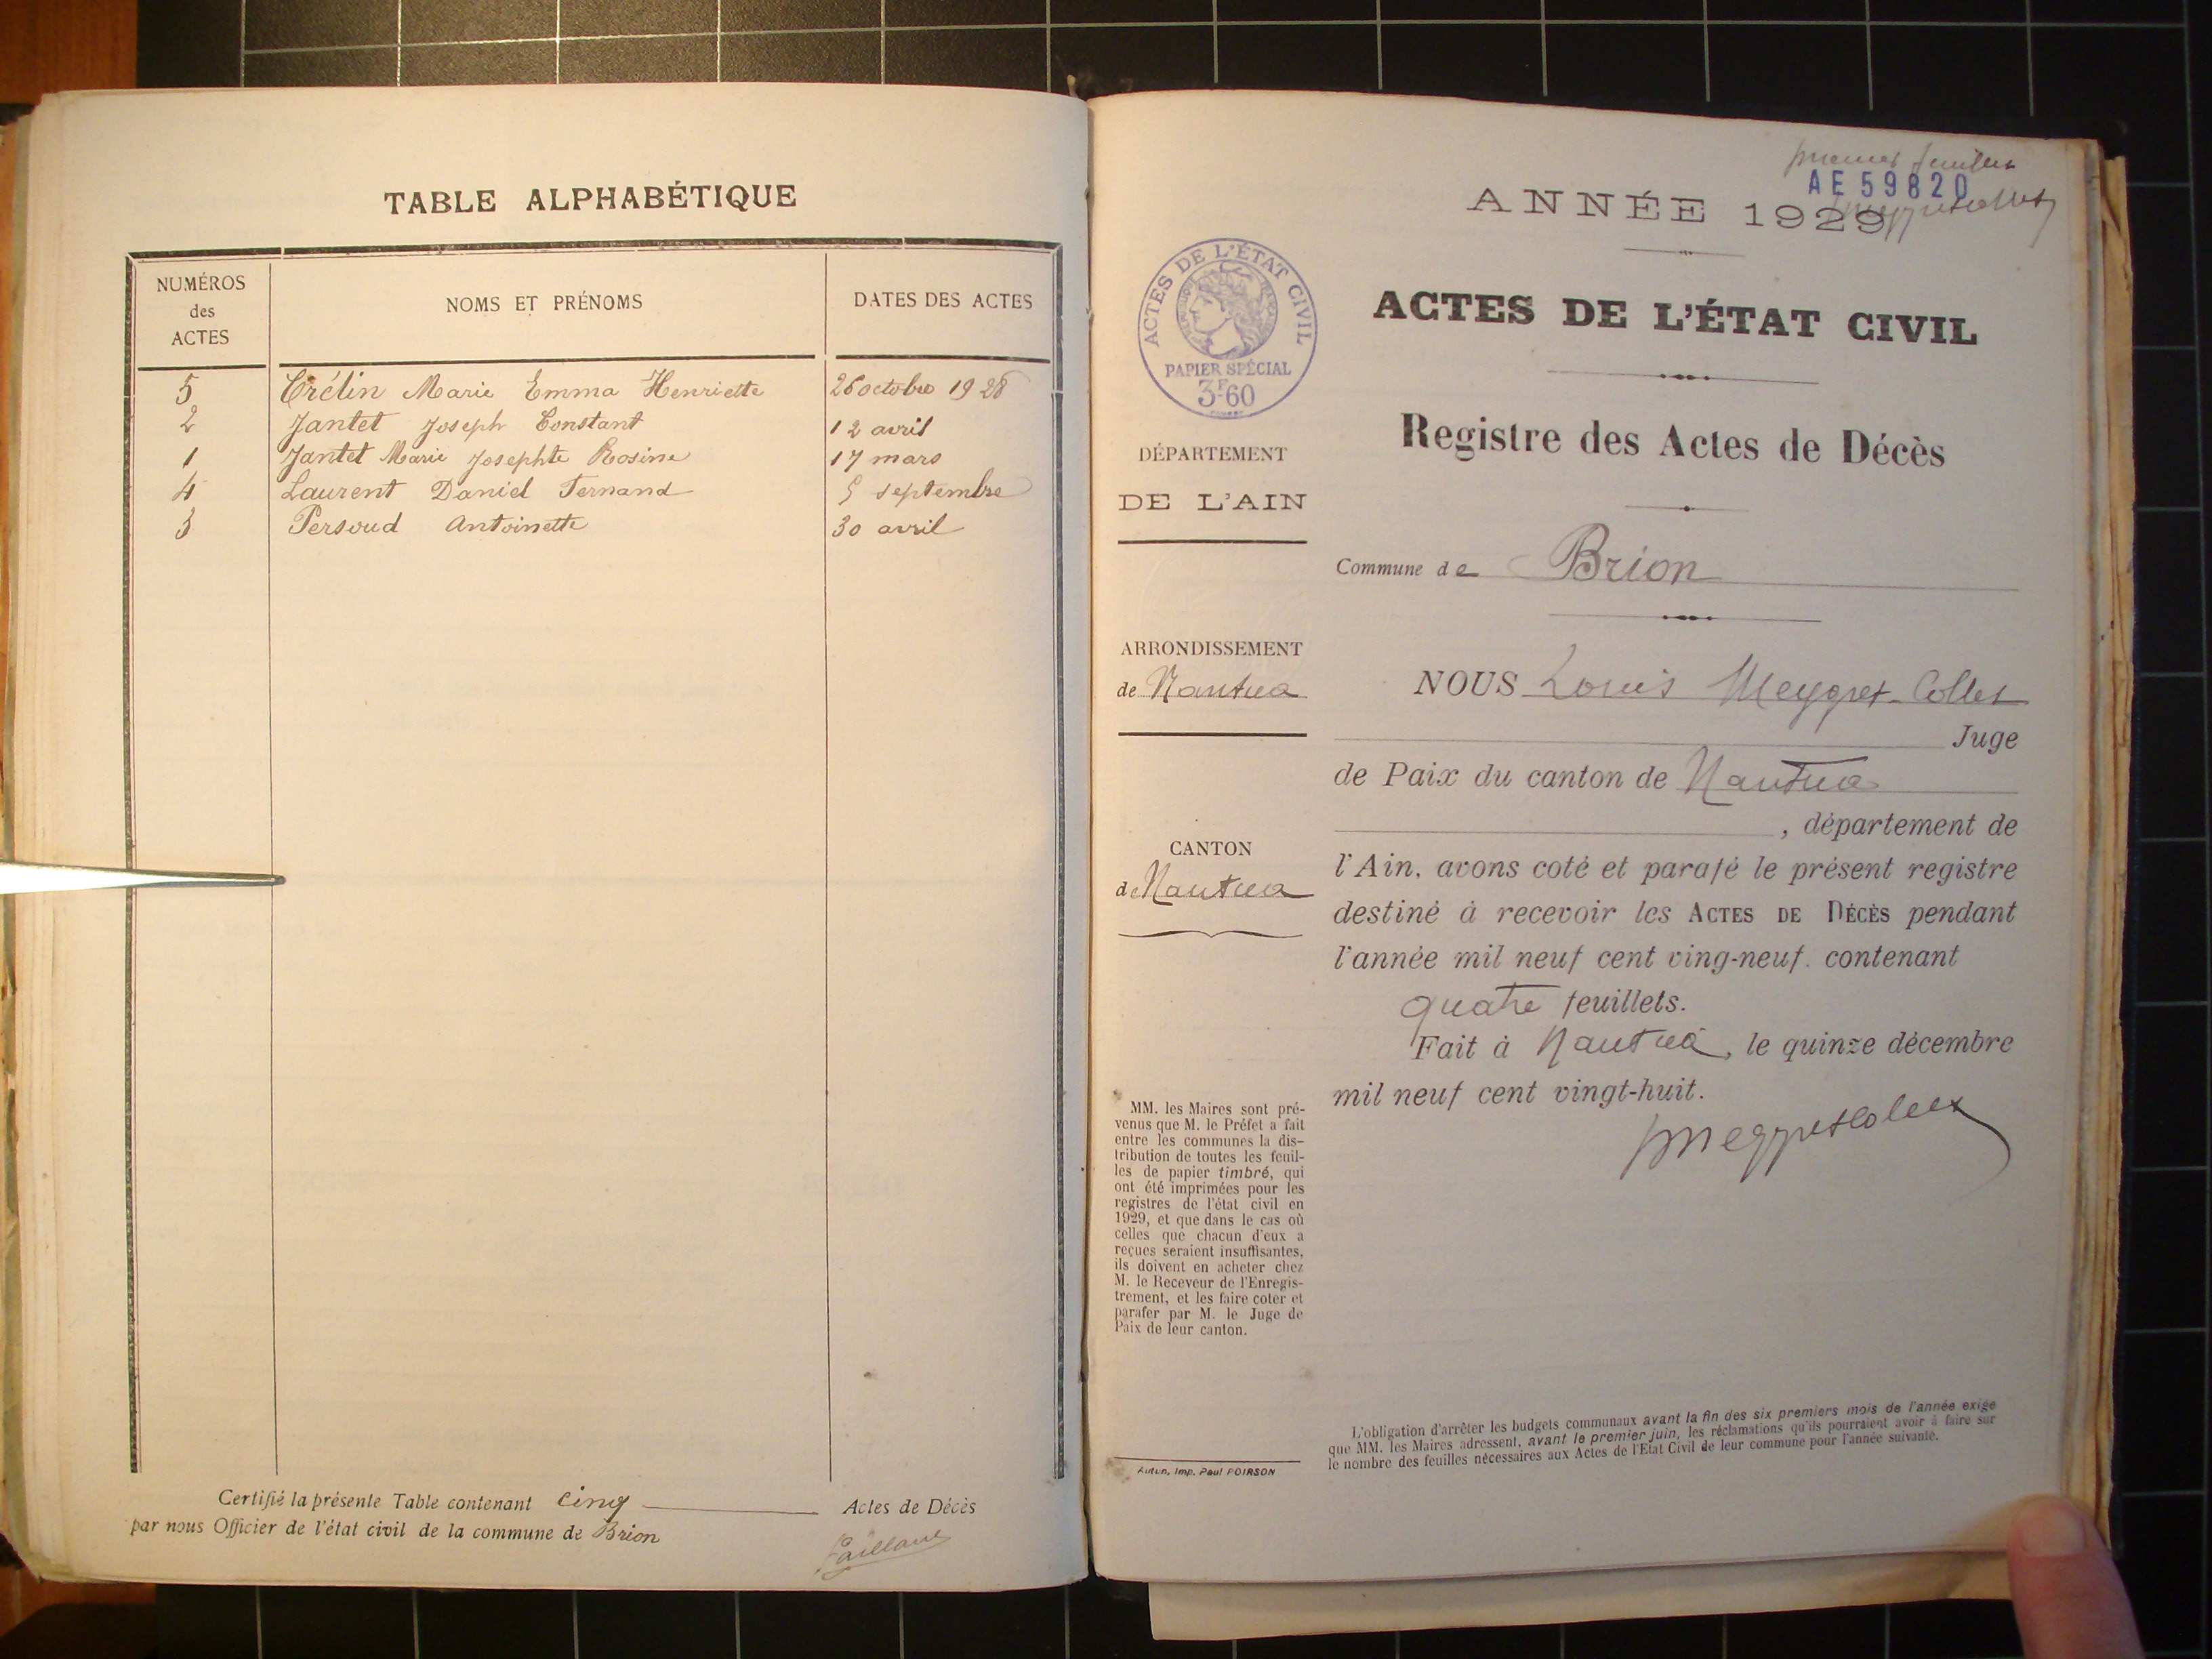 TABLE ALPHABÉTIQUE
NUMÉROS des ACTES NOMS ET PRÉNOMS DATES DES ACTES
5 Crétin Marie Emma Henriette 26 octobre 1928
2 Jantet Joseph Constant 12 avril
1 Jantet Marie Josephte Rosine 17 mars
4 Laurent Daniel Fernand 5 septembre
3 Persoud Antoinette 30 avril
Certifié la présente Table contenant cinq Actes de Décès
par nous Officier de l'état civil de la commune de Brion
premier feuillet
AE 59820
ANNÉE 1929
ACTES DE L'ÉTAT CIVIL
PAPIER SPÉCIAL
3F60
ACTES DE L'ÉTAT CIVIL
Registre des Actes de Décès
DÉPARTEMENT
DE L'AIN
Commune de Brion
ARRONDISSEMENT
de Nantua
CANTON
de Nantua
NOUS Louis Meygret-Collet
Juge
de Paix du canton de Nantua
, département de
l'Ain, avons coté et parafé le présent registre
destiné à recevoir les ACTES DE DÉCÈS pendant
l'année mil neuf cent ving-neuf. contenant
quatre feuillets.
Fait à Nantua, le quinze décembre
mil neuf cent vingt-huit.
Meygretcollet
MM. les Maires sont pré-
venus que M. le Préfet a fait
entre les communes la dis-
tribution de toutes les feuil-
les de papier timbré, qui
ont été imprimées pour les
registres de l'état civil en
1929, et que dans le cas où
celles que chacun d'eux a
reçues seraient insuffisantes,
ils doivent en acheter chez
M. le Receveur de l'Enregis-
trement, et les faire coter et
parafer par M. le Juge de
Paix de leur canton.
Autun, Imp. Paul POIRSON
L'obligation d'arrêter les budgets communaux avant la fin des six premiers mois de l'année exige
que MM. les Maires adressent, avant le premier juin, les réclamations qu'ils pourraient avoir à faire sur
le nombre des feuilles nécessaires aux Actes de l'Etat Civil de leur commune pour l'année suivante.